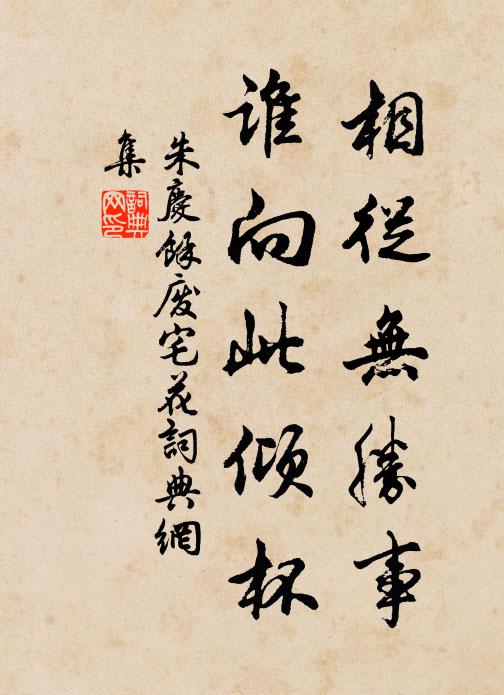 相從無勝事
誰向此傾杯
朱慶餘廢宅花詞典網
集
詞典
网印